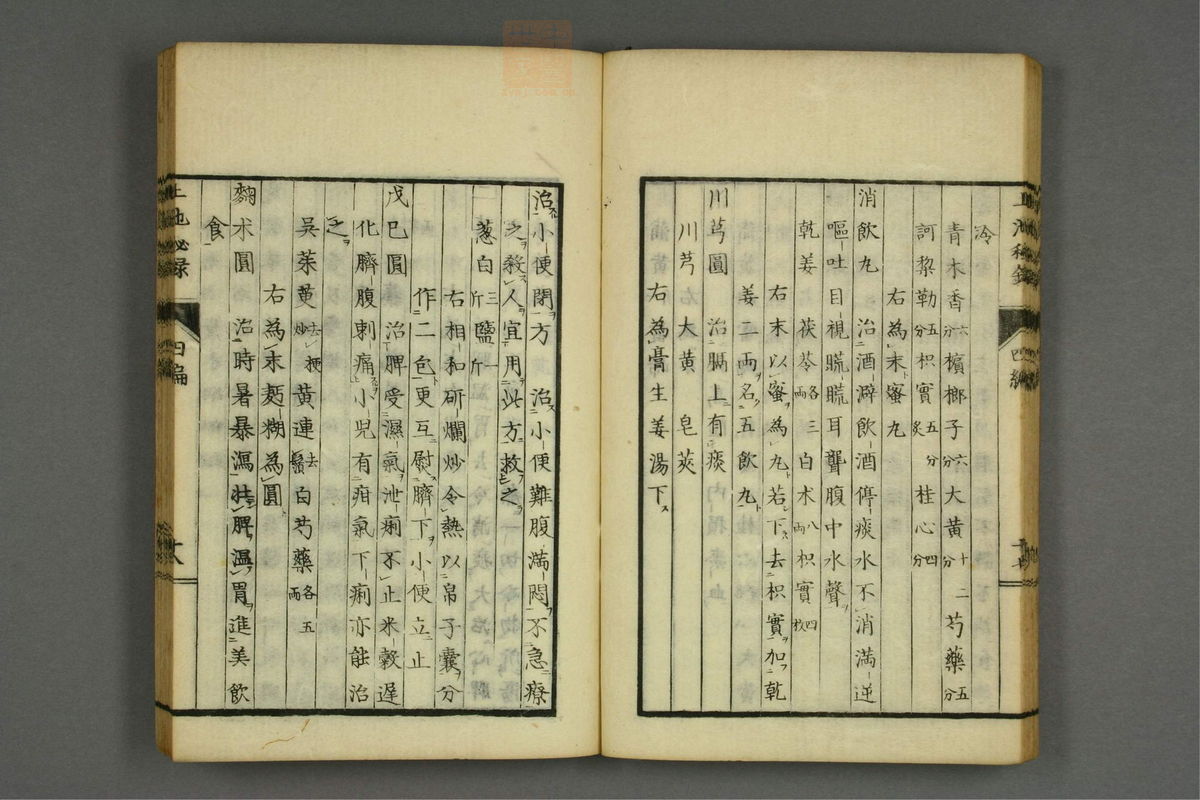 冷
青木香六分檳榔子六分大黃十二分芍藥五分
訶黎勒五分枳實五分炙桂心四分
右為末蜜丸
消飲丸 治酒澼飲酒停痰水不消滿逆
嘔吐目視䀮䀮耳聾腹中水聲
乾姜 茯苓各三兩白朮八兩枳實四枚
右末以蜜為丸若下去枳實加乾
姜二兩名五飲丸
川芎圓 治膈上有痰
川芎 大黃 皂莢
右為膏生姜湯下
治小便閉方 治小便難腹滿悶不急療
之殺人宜用此方救之
葱白三斤鹽一斤
右相和研爛炒令熱以帛子囊分
作二包更互慰臍下小便立止
戊巳圓 治脾受濕氣泄痢不止米穀遲
化臍腹刺痛小兒有疳氣下痢亦能治
之
吳茱萸去梗炒黃連去鬚白芍藥各五兩
右為末麪糊為圓
麴朮圓 治時暑暴瀉壯脾溫胃進美飲
食
四編
十八